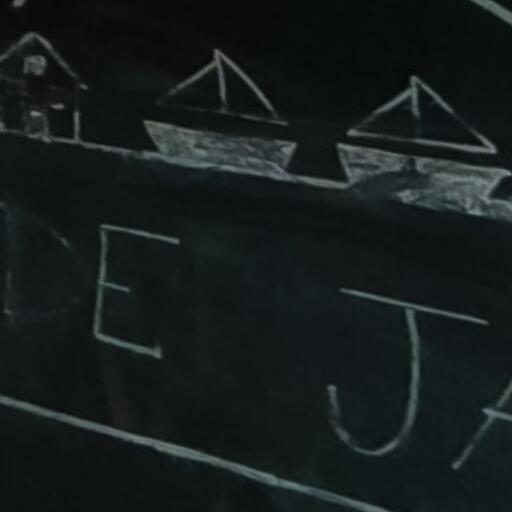 DE JA